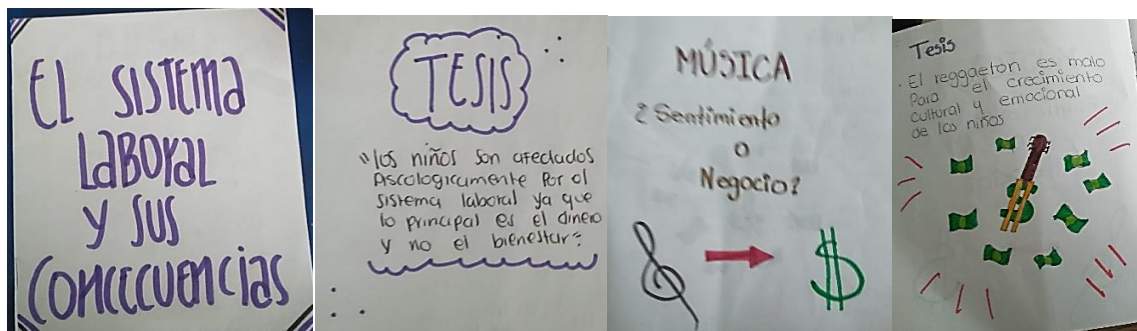 El sistema
laboral
y sus
conccuencias
TESIS
"los niños son afectados
Pscologicamente Por el
sistema laboral ya que
lo principal es el dinero
y no el bienestar"
MÚSICA
¿Sentimiento
o
Negocio?
Tesis
El reggaeton es malo
Para el crecimiento
cultural y emocional
de los niños